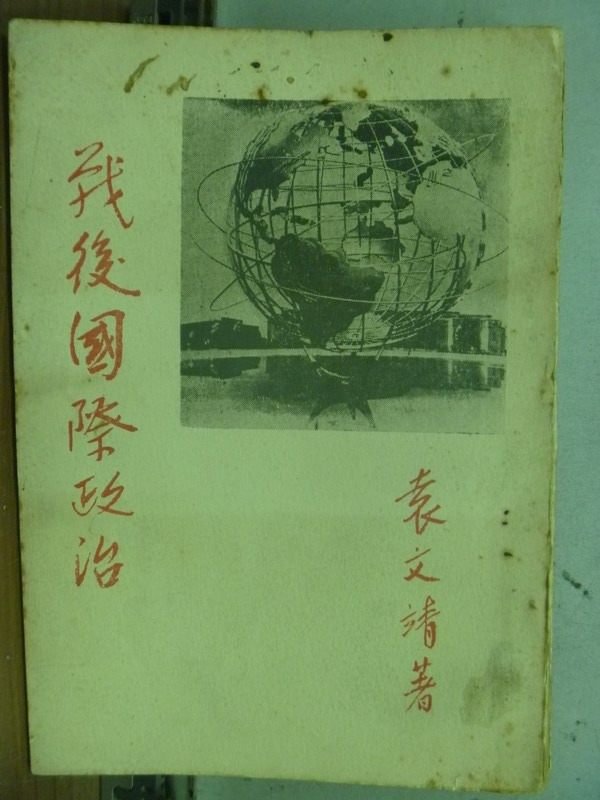 戰後國際政治
袁文靖著